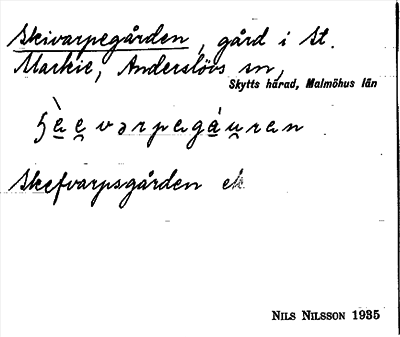 Skivarpegården, gård i St.
Markie, Anderslövs sn,
Skytts härad, Malmöhus län
ʒà̠e̯varpagà̠u̯ran
Skefvarpsgården ek
NILS NILSSON 1935